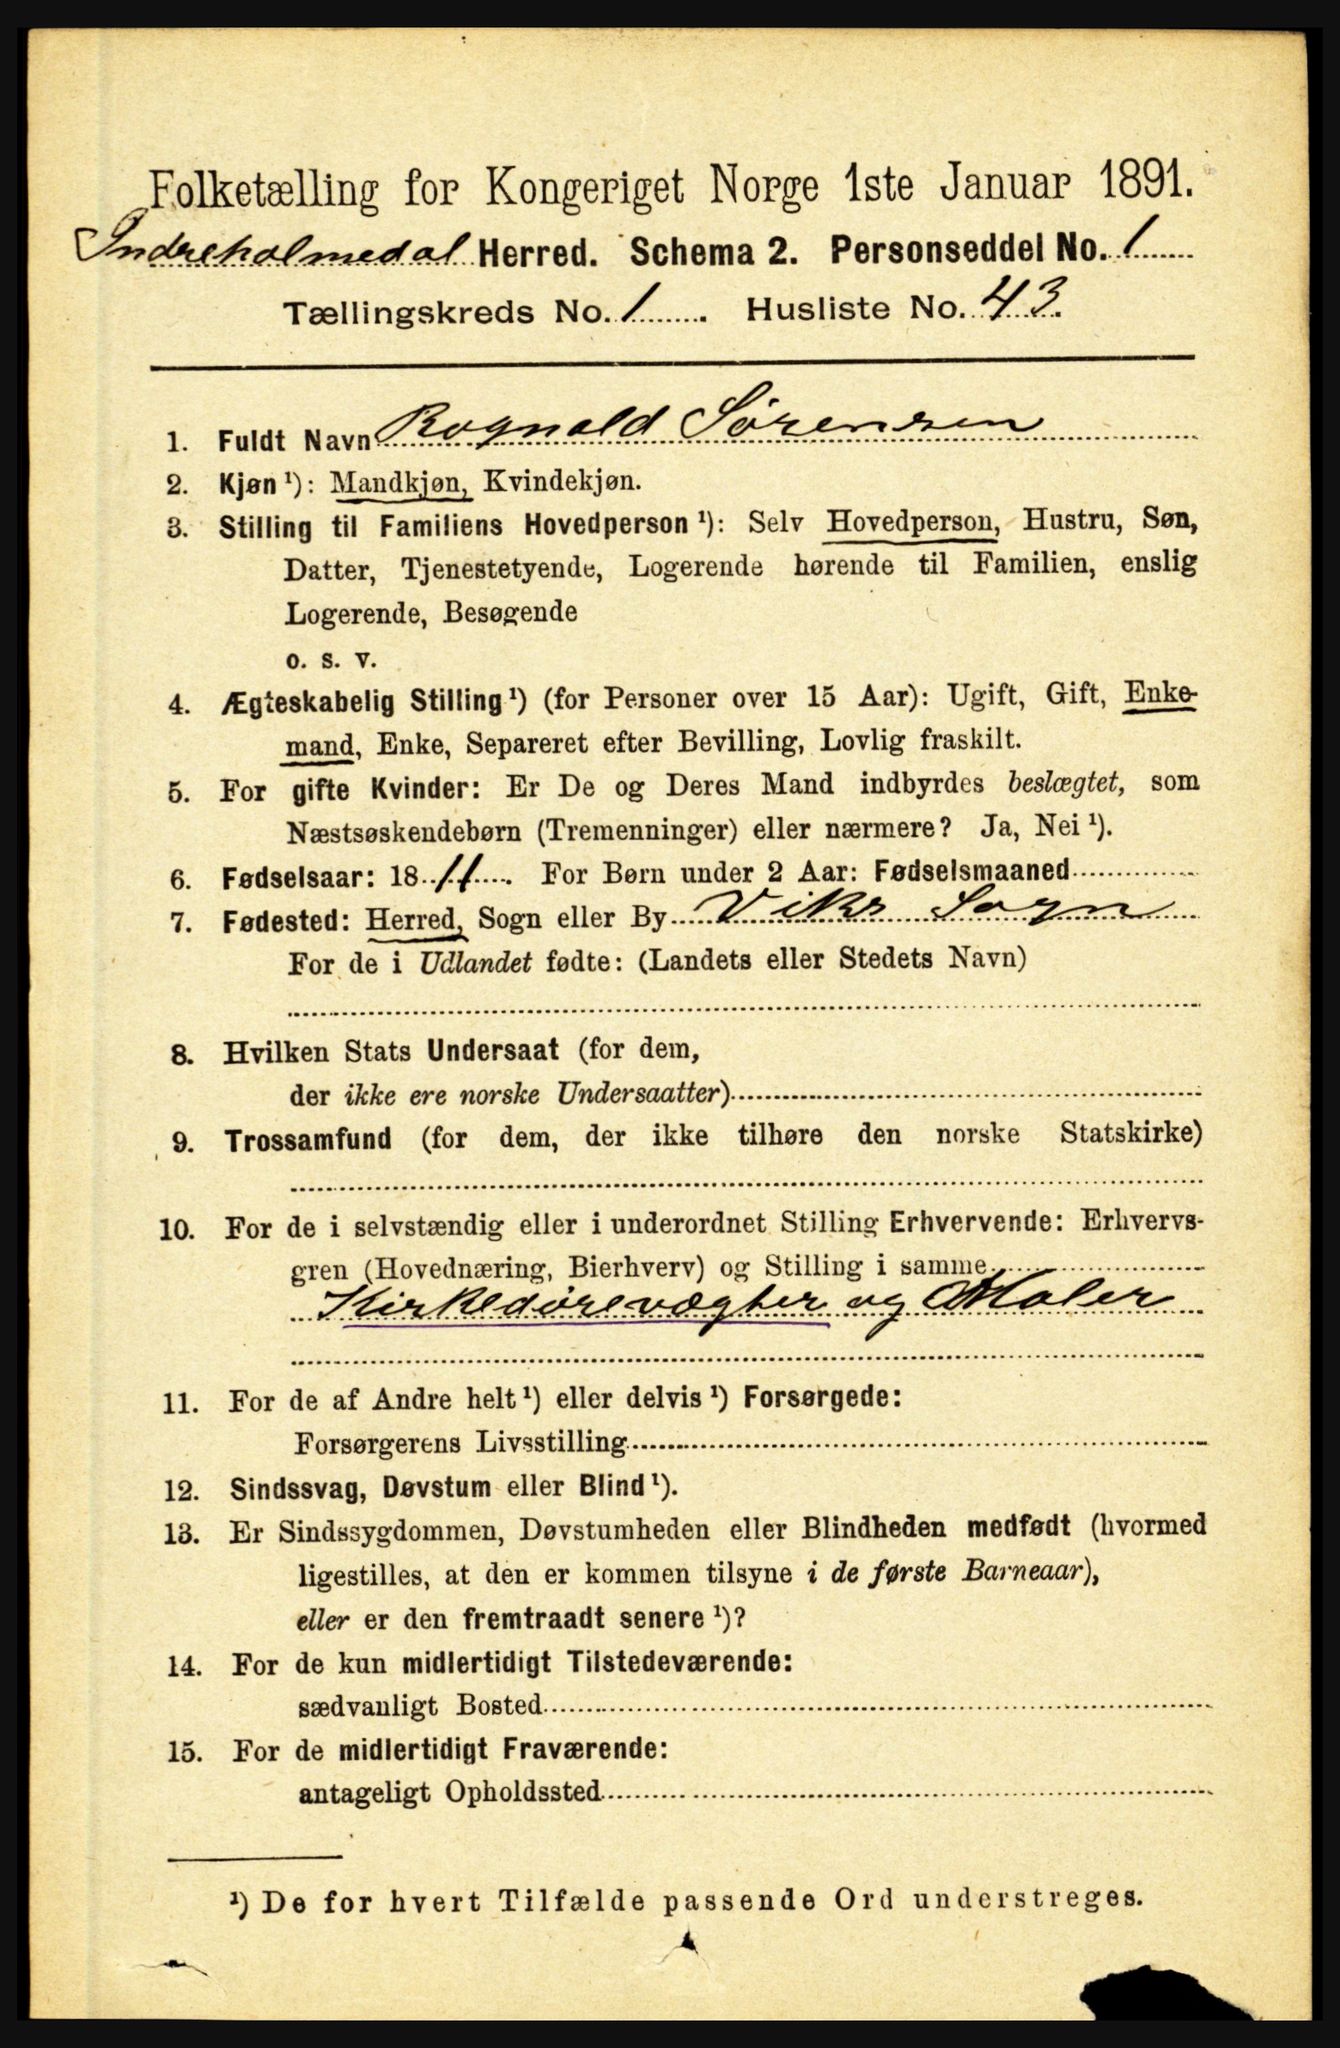 Folketælling for Kongeriget Norge 1ste Januar 1891.
Indreholmedal Herred. Schema 2. Personseddel No. 1
Tællingskreds No. 1. Husliste No. 43.
1. Fuldt Navn Rognald Sörensen
2. Kjøn ¹): Mandkjøn, Kvindekjøn.
3. Stilling til Familiens Hovedperson ¹): Selv Hovedperson, Hustru, Søn,
Datter, Tjenestetyende, Logerende hørende til Familien, enslig
Logerende, Besøgende
o. s. v.
4. Ægteskabelig Stilling ¹) (for Personer over 15 Aar): Ugift, Gift, Enke-
mand, Enke, Separeret efter Bevilling, Lovlig fraskilt.
5. For gifte Kvinder: Er De og Deres Mand indbyrdes beslægtet, som
Næstsøskendebørn (Tremenninger) eller nærmere? Ja, Nei ¹).
6. Fødselsaar: 1811. For Børn under 2 Aar: Fødselsmaaned
7. Fødested: Herred, Sogn eller By Viks Sogn
For de i Udlandet fødte: (Landets eller Stedets Navn)
8. Hvilken Stats Undersaat (for dem,
der ikke ere norske Undersaatter)
9. Trossamfund (for dem, der ikke tilhøre den norske Statskirke)
10. For de i selvstændig eller i underordnet Stilling Erhvervende: Erhvervs-
gren (Hovednæring, Bierhverv) og Stilling i samme
Kirkedörevægter og Maler
11. For de af Andre helt ¹) eller delvis ¹) Forsørgede:
Forsørgerens Livsstilling
12. Sindssvag, Døvstum eller Blind ¹).
13. Er Sindssygdommen, Døvstumheden eller Blindheden medfødt (hvormed
ligestilles, at den er kommen tilsyne i de første Barneaar),
eller er den fremtraadt senere ¹)?
14. For de kun midlertidigt Tilstedeværende:
sædvanligt Bosted
15. For de midlertidigt Fraværende:
antageligt Opholdssted
¹) De for hvert Tilfælde passende Ord understreges.